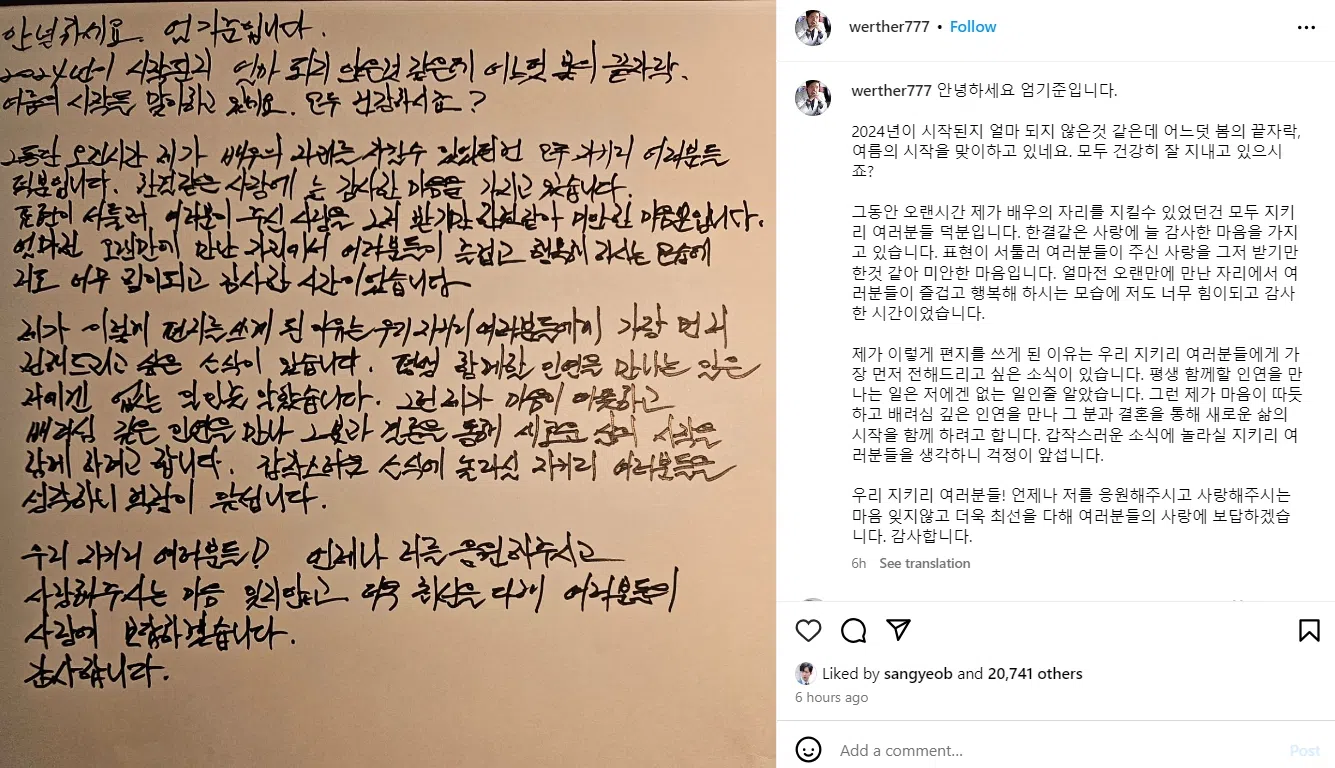 안녕하세요. 엄기준입니다.
2024년이 시작된지 얼마 되지 않은것 같은데 어느덧 봄의 끝자락,
여름의 시작을 맞이하고 있네요. 모두 건강하시죠?
그동안 오랜시간 제가 배우의 자리를 지킬수 있었던건 모두 지키리 여러분들
덕분입니다. 한결같은 사랑에 늘 감사한 마음을 가지고 있습니다.
표현이 서툴러 여러분이 주신 사랑을 그저 받기만 한것같아 미안한 마음뿐입니다.
얼마전 오랜만에 만난 자리에서 여러분들이 즐겁고 행복해 하시는 모습에
저도 너무 힘이되고 감사한 시간이었습니다
제가 이렇게 편지를 쓰게 된 이유는 우리 지키리 여러분들에게 가장 먼저
전해드리고 싶은 소식이 있습니다. 평생 함께할 인연을 만나는 일은
저에겐 없는 일인줄 알았습니다. 그런 제가 마음이 따뜻하고
배려심 깊은 인연을 만나 그분과 결혼을 통해 새로운 삶의 시작을
함께 하려고 합니다. 갑작스러운 소식에 놀라실 지키리 여러분들을
생각하니 걱정이 앞섭니다.
우리 지키리 여러분들! 언제나 저를 응원해주시고
사랑해주시는 마음 잊지않고 더욱 최선을 다해 여러분들의
사랑에 보답하겠습니다.
감사합니다.
werther777 • Follow
werther777 안녕하세요 엄기준입니다.
2024년이 시작된지 얼마 되지 않은것 같은데 어느덧 봄의 끝자락,
여름의 시작을 맞이하고 있네요. 모두 건강히 잘 지내고 있으시
죠?
그동안 오랜시간 제가 배우의 자리를 지킬수 있었던건 모두 지키
리 여러분들 덕분입니다. 한결같은 사랑에 늘 감사한 마음을 가지
고 있습니다. 표현이 서툴러 여러분들이 주신 사랑을 그저 받기만
한것 같아 미안한 마음입니다. 얼마전 오랜만에 만난 자리에서 여
러분들이 즐겁고 행복해 하시는 모습에 저도 너무 힘이되고 감사
한 시간이었습니다.
제가 이렇게 편지를 쓰게 된 이유는 우리 지키리 여러분들에게 가
장 먼저 전해드리고 싶은 소식이 있습니다. 평생 함께할 인연을 만
나는 일은 저에겐 없는 일인줄 알았습니다. 그런 제가 마음이 따듯
하고 배려심 깊은 인연을 만나 그 분과 결혼을 통해 새로운 삶의
시작을 함께 하려고 합니다. 갑작스러운 소식에 놀라실 지키리 여
러분들을 생각하니 걱정이 앞섭니다.
우리 지키리 여러분들! 언제나 저를 응원해주시고 사랑해주시는
마음 잊지않고 더욱 최선을 다해 여러분들의 사랑에 보답하겠습
니다. 감사합니다.
6h See translation
Liked by sangyeob and 20,741 others
6 hours ago
Add a comment...
Post